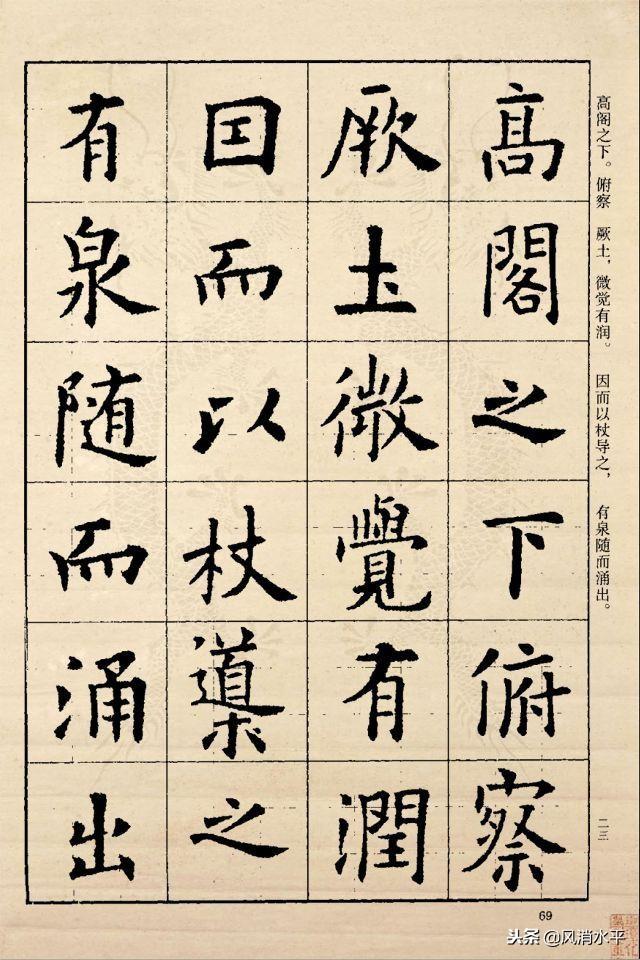 高阁之下。俯察 厥土，微觉有润。 因而以杖导之， 有泉随而涌出。
二三
高閣之下俯察
厥土微覺有潤
因而以杖導之
有泉随而涌出
69
头条@风消水平